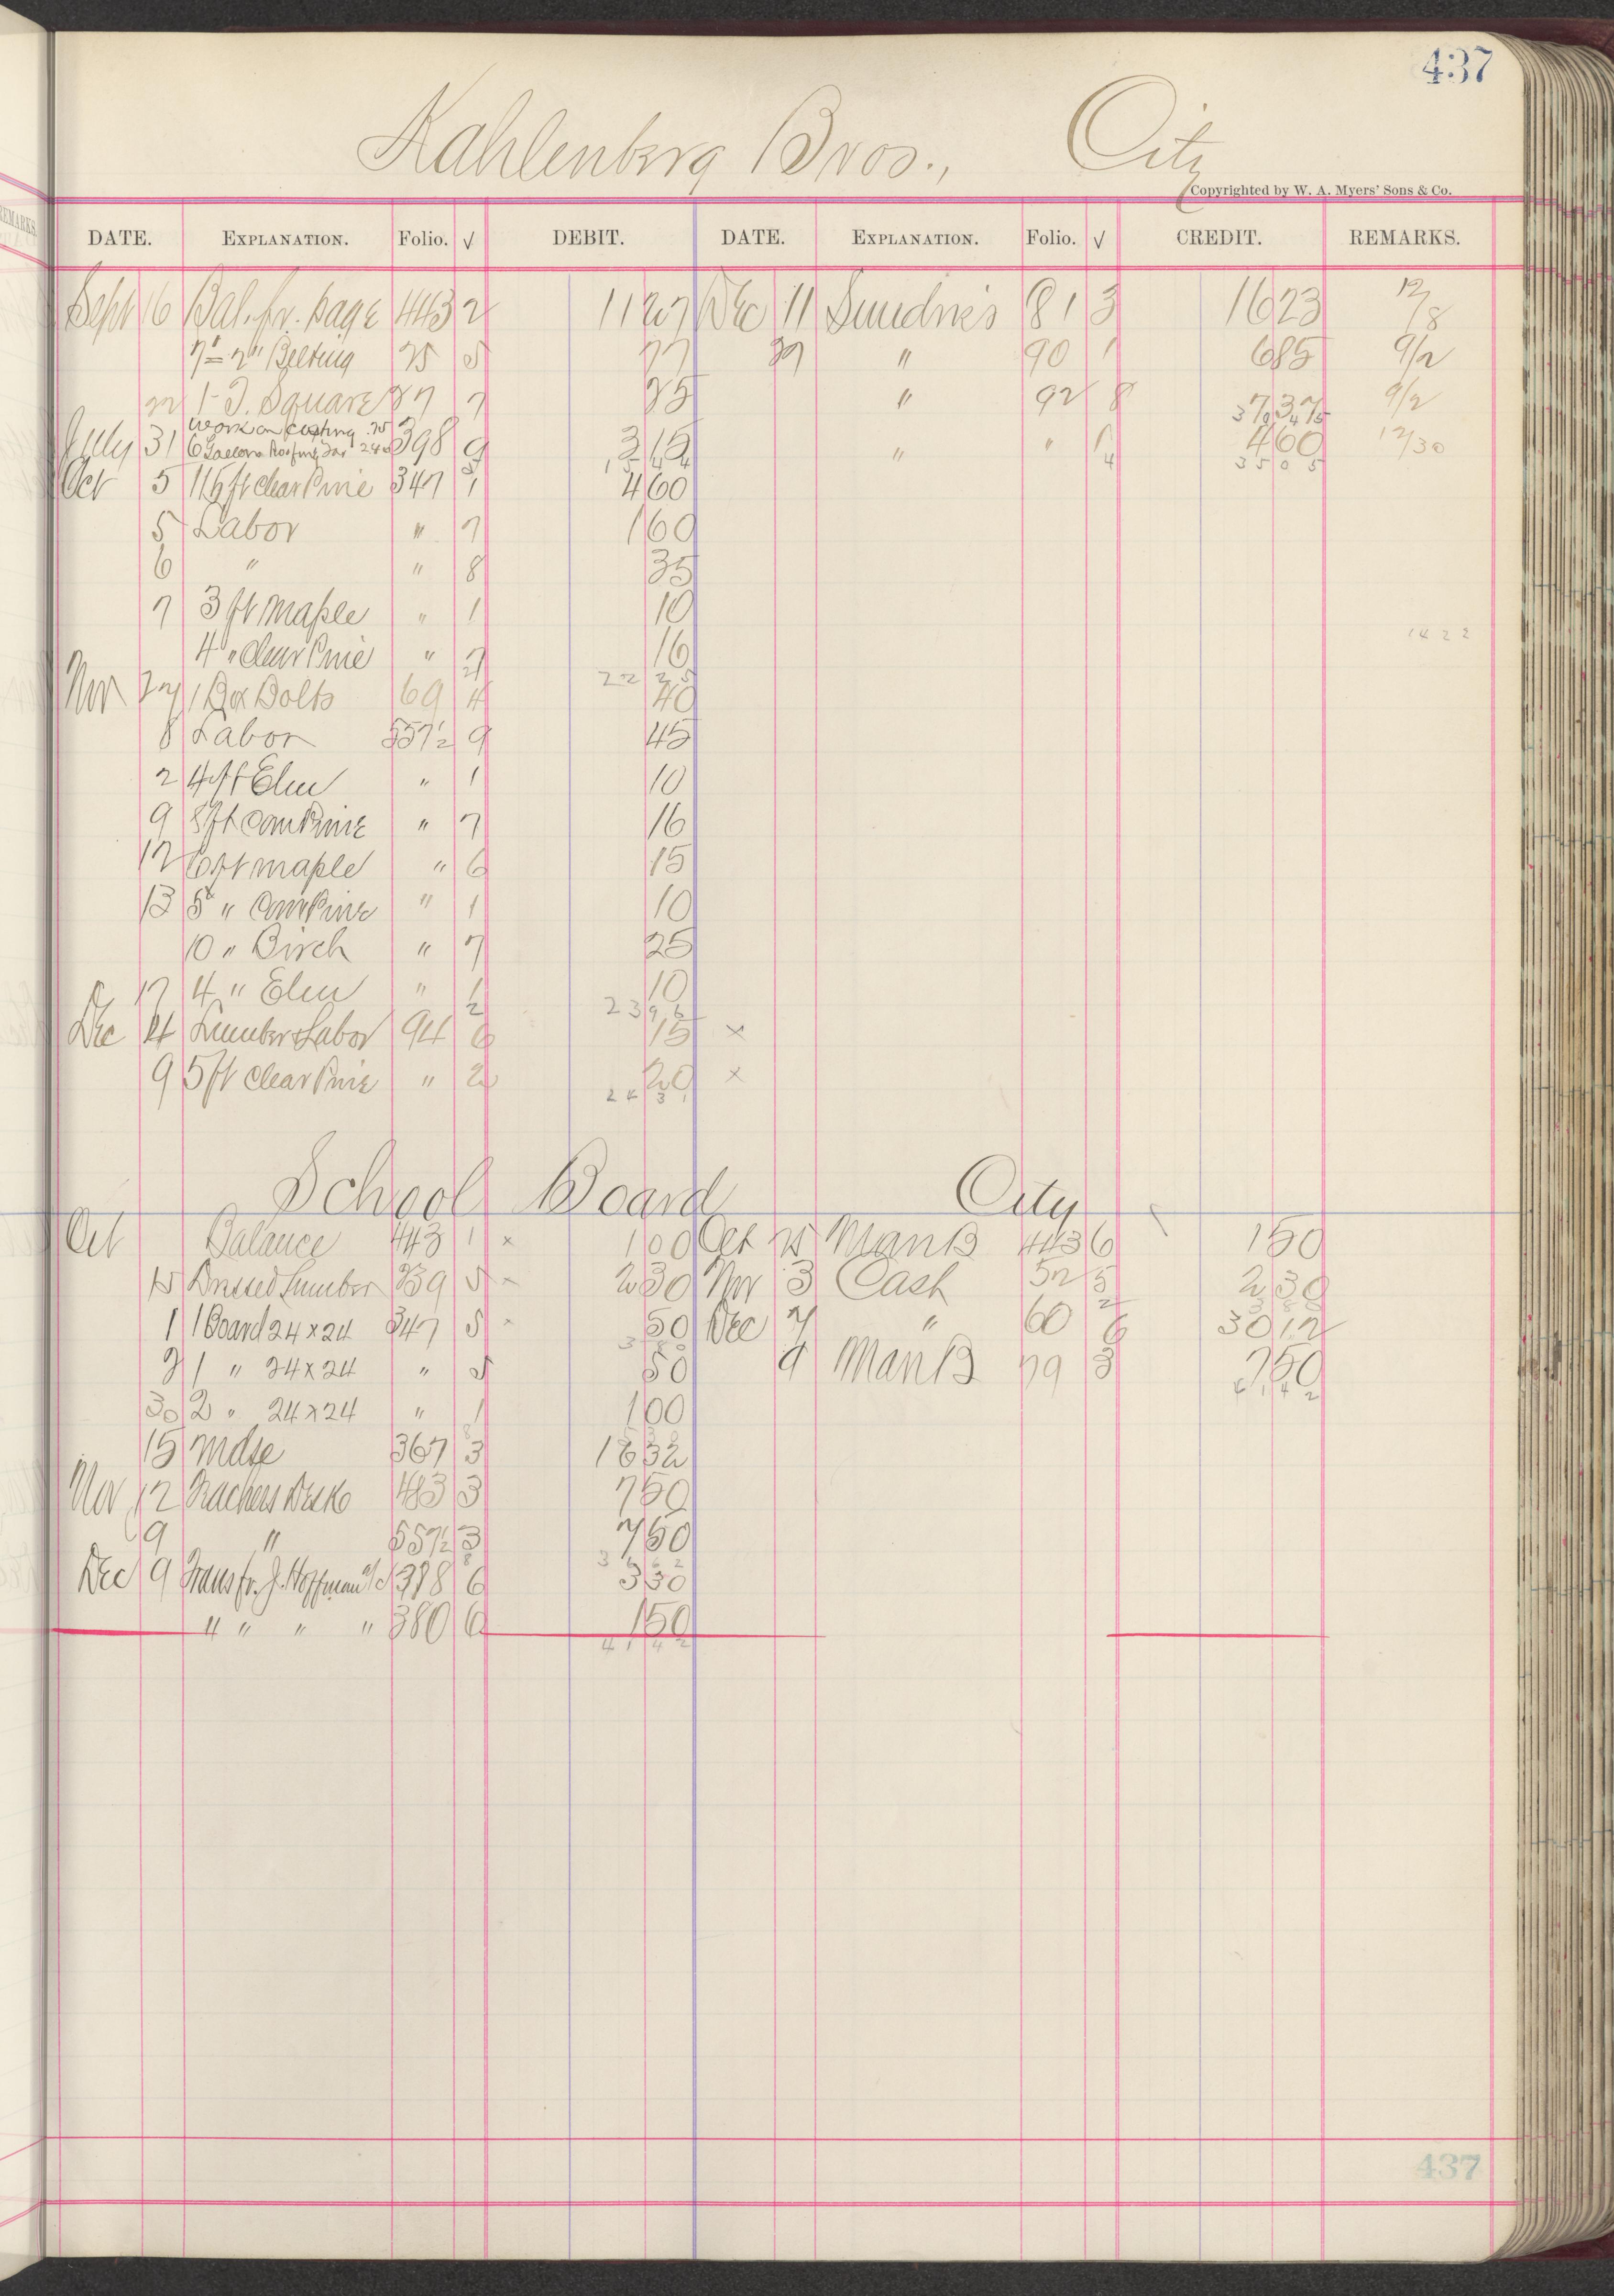 437
Kahlenberg Bros., City
Copyrighted by W. A. Myers' Sons & Co.
DATE. EXPLANATION. Folio. √ DEBIT. DATE. EXPLANATION. Folio. √ CREDIT. REMARKS.
Sept 16 Bal. fr. page 443 2 1127 Dec 11 Sundries 81 3 1623 12/8
Belting 75 5 77 " 90 1 685 9/2
22 1 T. Square 87 7 35 " 92 8 9/2
Work on casting .75
July 31 6 Gallons Roofing Tar 240 398 9 315 " " 1 460 12/30
1554 3505
Oct 5 115 ft clear Pine 347 1 460
5 Labor " 7 160
6 " " 8 35
7 3 ft Maple " 1 10
1422
4 " Clear Pine " 7 16
2225
Nov 1 Box Bolts 69 4 40
8 Labor 557½ 9 45
2 4 ft Elm " 1 10
9 8 ft com Pine " 7 16
12 6 ft maple " 6 15
13 5 " Com Pine " 1 10
10 " Birch " 7 25
17 4 " Elm " 1 10
2396
Dec 4 Lumber & Labor 94 6 15 ×
9 5 ft clear Pine " 2 20 ×
2431
School Board City
Oct Balance 443 1 × 100 Oct 15 Man B 443 6 150
15 Dressed Lumber 239 5 × 230 Nov 3 Cash 52 5 230
1 1 Board 24 × 24 347 5 × 50 Dec 7 " 60 6 3012
2 1 " 24 × 24 " 5 50 9 Man B 79 3 750
6142
30 2 " 24 × 24 " 1 100
15 Mdse 367 3 1832
Nov 12 Teachers Desk 483 3 750
9 " 557½ 3 750
3662
Dec 9 Trans fr. J. Hoffman a/c 378 6 330
" " " " 380 6 150
4142
437